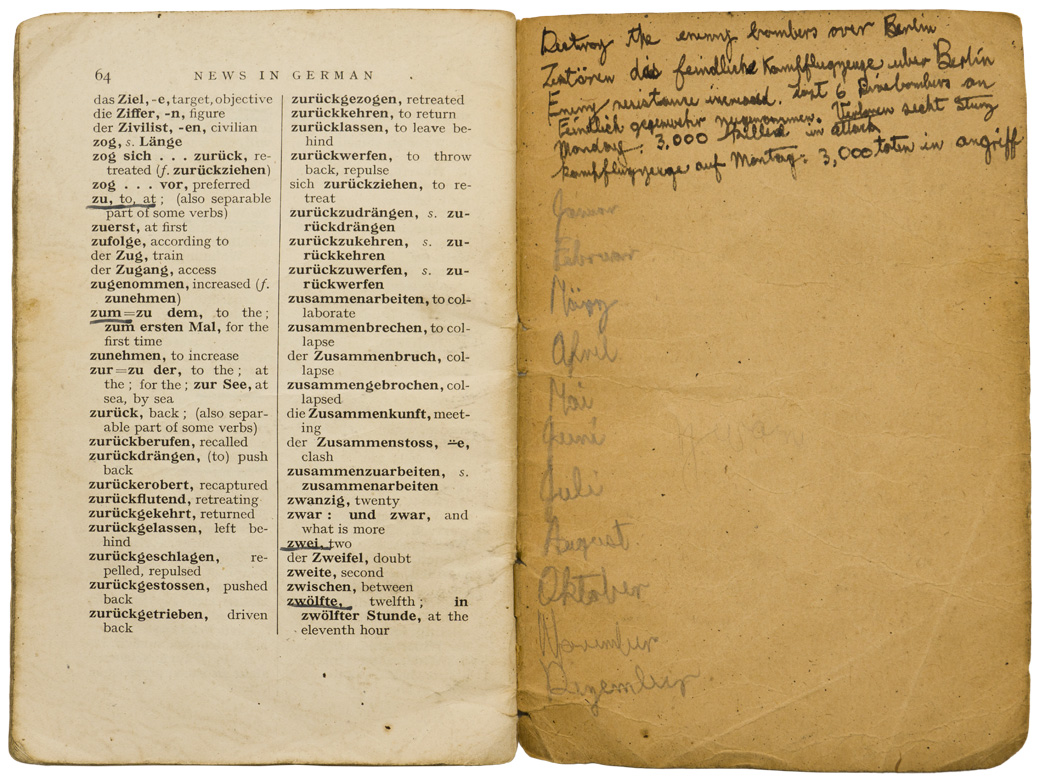 64 NEWS IN GERMAN
das Ziel, -e, target, objective
die Ziffer, -n, figure
der Zivilist, -en, civilian
zog, s. Länge
zog sich . . . zurück, re-
treated (f. zurückziehen)
zog . . . vor, preferred
zu, to, at ; (also separable
part of some verbs)
zuerst, at first
zufolge, according to
der Zug, train
der Zugang, access
zugenommen, increased (f.
zunehmen)
zum=zu dem, to the ;
zum ersten Mal, for the
first time
zunehmen, to increase
zur=zu der, to the ; at
the ; for the ; zur See, at
sea, by sea
zurück, back ; (also separ-
able part of some verbs)
zurückberufen, recalled
zurückdrängen, (to) push
back
zurückerobert, recaptured
zurückflutend, retreating
zurückgekehrt, returned
zurückgelassen, left be-
hind
zurückgeschlagen, re-
pelled, repulsed
zurückgestossen, pushed
back
zurückgetrieben, driven
back
zurückgezogen, retreated
zurückkehren, to return
zurücklassen, to leave be-
hind
zurückwerfen, to throw
back, repulse
sich zurückziehen, to re-
treat
zurückzudrängen, s. zu-
rückdrängen
zurückzukehren, s. zu-
rückkehren
zurückzuwerfen, s. zu-
rückwerfen
zusammenarbeiten, to col-
laborate
zusammenbrechen, to col-
lapse
der Zusammenbruch, col-
lapse
zusammengebrochen, col-
lapsed
die Zusammenkunft, meet-
ing
der Zusammenstoss, ⸚e,
clash
zusammenzuarbeiten, s.
zusammenarbeiten
zwanzig, twenty
zwar : und zwar, and
what is more
zwei, two
der Zweifel, doubt
zweite, second
zwischen, between
zwölfte, twelfth ; in
zwölfter Stunde, at the
eleventh hour
Destroy the enemy bombers over Berlin
Zestören das feindliche Kampfflugzeuge uber Berlin
Enemy resistance increased. Lost 6 Divebombers on
Feindlich gegenwehr zugenommen. Verloren secht Sturz
Monday : 3,000 killed in attack
kampfflugzeuge auf Montag : 3,000 toten in angriff
Januar
Februar
März
April
Mai
Juni
Juli
August
Oktober
November
Dezember